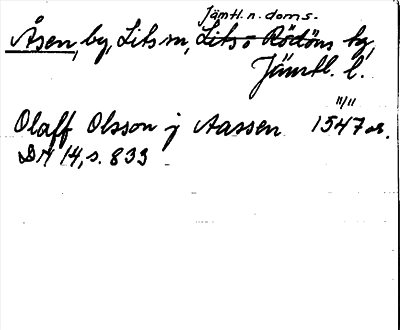 Jämtl. n. doms.
Åsen, by, Lits sn, Lits o Rödöns tg,
Jämtl. l.
11/11
Olaff Olsson j Aassen 1547 or.
DN 14, s. 833